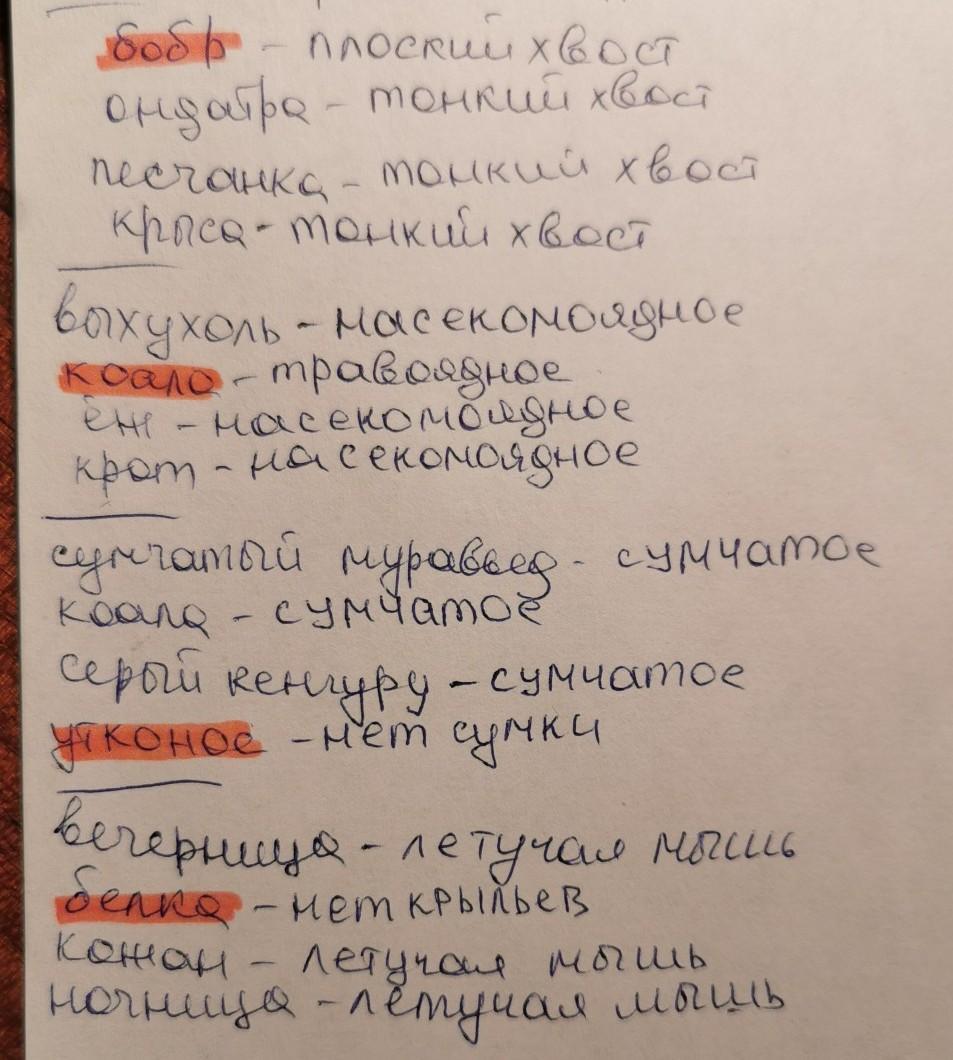 бобр - плоский хвост
ондатра - тонкий хвост
песчанка - тонкий хвост
крыса - тонкий хвост
выхухоль - насекомоядное
коала - травоядное
ёж - насекомоядное
крот - насекомоядное
сумчатый муравьед - сумчатое
коала - сумчатое
серый кенгуру - сумчатое
утконос - нет сумки
вечерница - летучая мышь
белка - нет крыльев
кожан - летучая мышь
ночница - летучая мышь